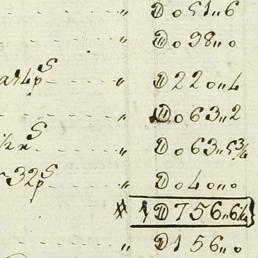 „ D o 51 „ 6
„ D o 98 „ o
„ D 22 o „ 4
„ D o 63 „ 2
„ D o 63 „ 5¾
32 p S „ D o 4 o „ o
D 756 „ 6¼
„ D 156 „ o